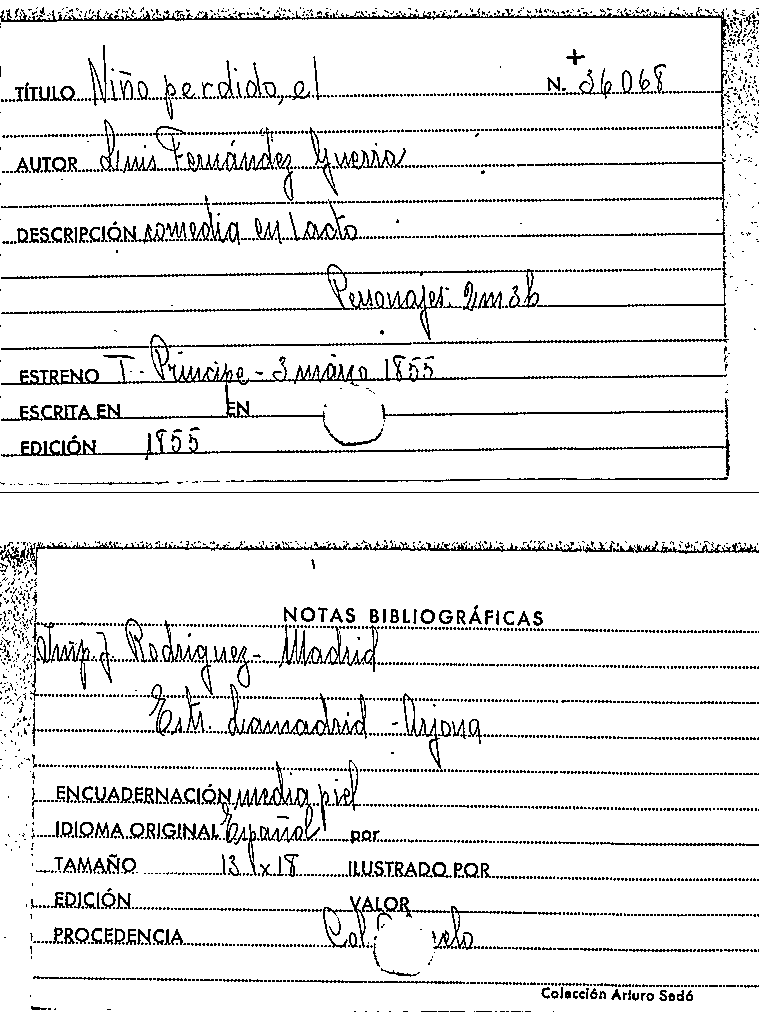 +
TÍTULO Niño perdido, el N. 36068
AUTOR Luis Fernández Guerra
DESCRIPCIÓN comedia en 1 acto
Personajes: 2m 3h
ESTRENO T. Príncipe - 3 marzo 1855
ESCRITA EN EN
EDICIÓN 1855
NOTAS BIBLIOGRÁFICAS
Imp. J. Rodriguez - Madrid
Estr. Lamadrid - Arjona
ENCUADERNACIÓN media piel
IDIOMA ORIGINAL Español por
TAMAÑO 13 x 18 ILUSTRADO POR
EDICIÓN VALOR
PROCEDENCIA Col.
Colección Arturo Sedó